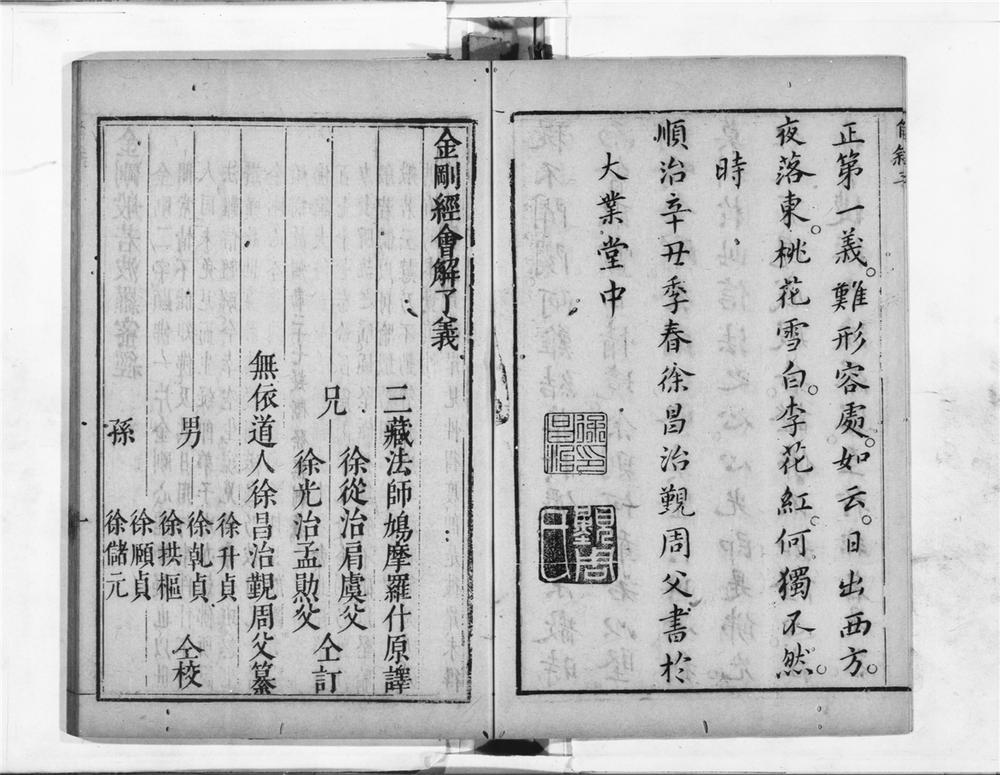 正第一義。難形容處。如云。日出西方。
夜落東。桃花雪白。李花紅。何獨不然。
時
順治辛丑季春徐昌治覲周父書於
大業堂中
徐昌治印
覲周
金剛經會解了義
三藏法師鳩摩羅什原譯
兄
徐從治肩虞父
徐光治孟勛父
仝訂
無依道人徐昌治覲周父纂
男
徐升貞
徐乾貞
徐拱樞
仝校
孫
徐願貞
徐儲元